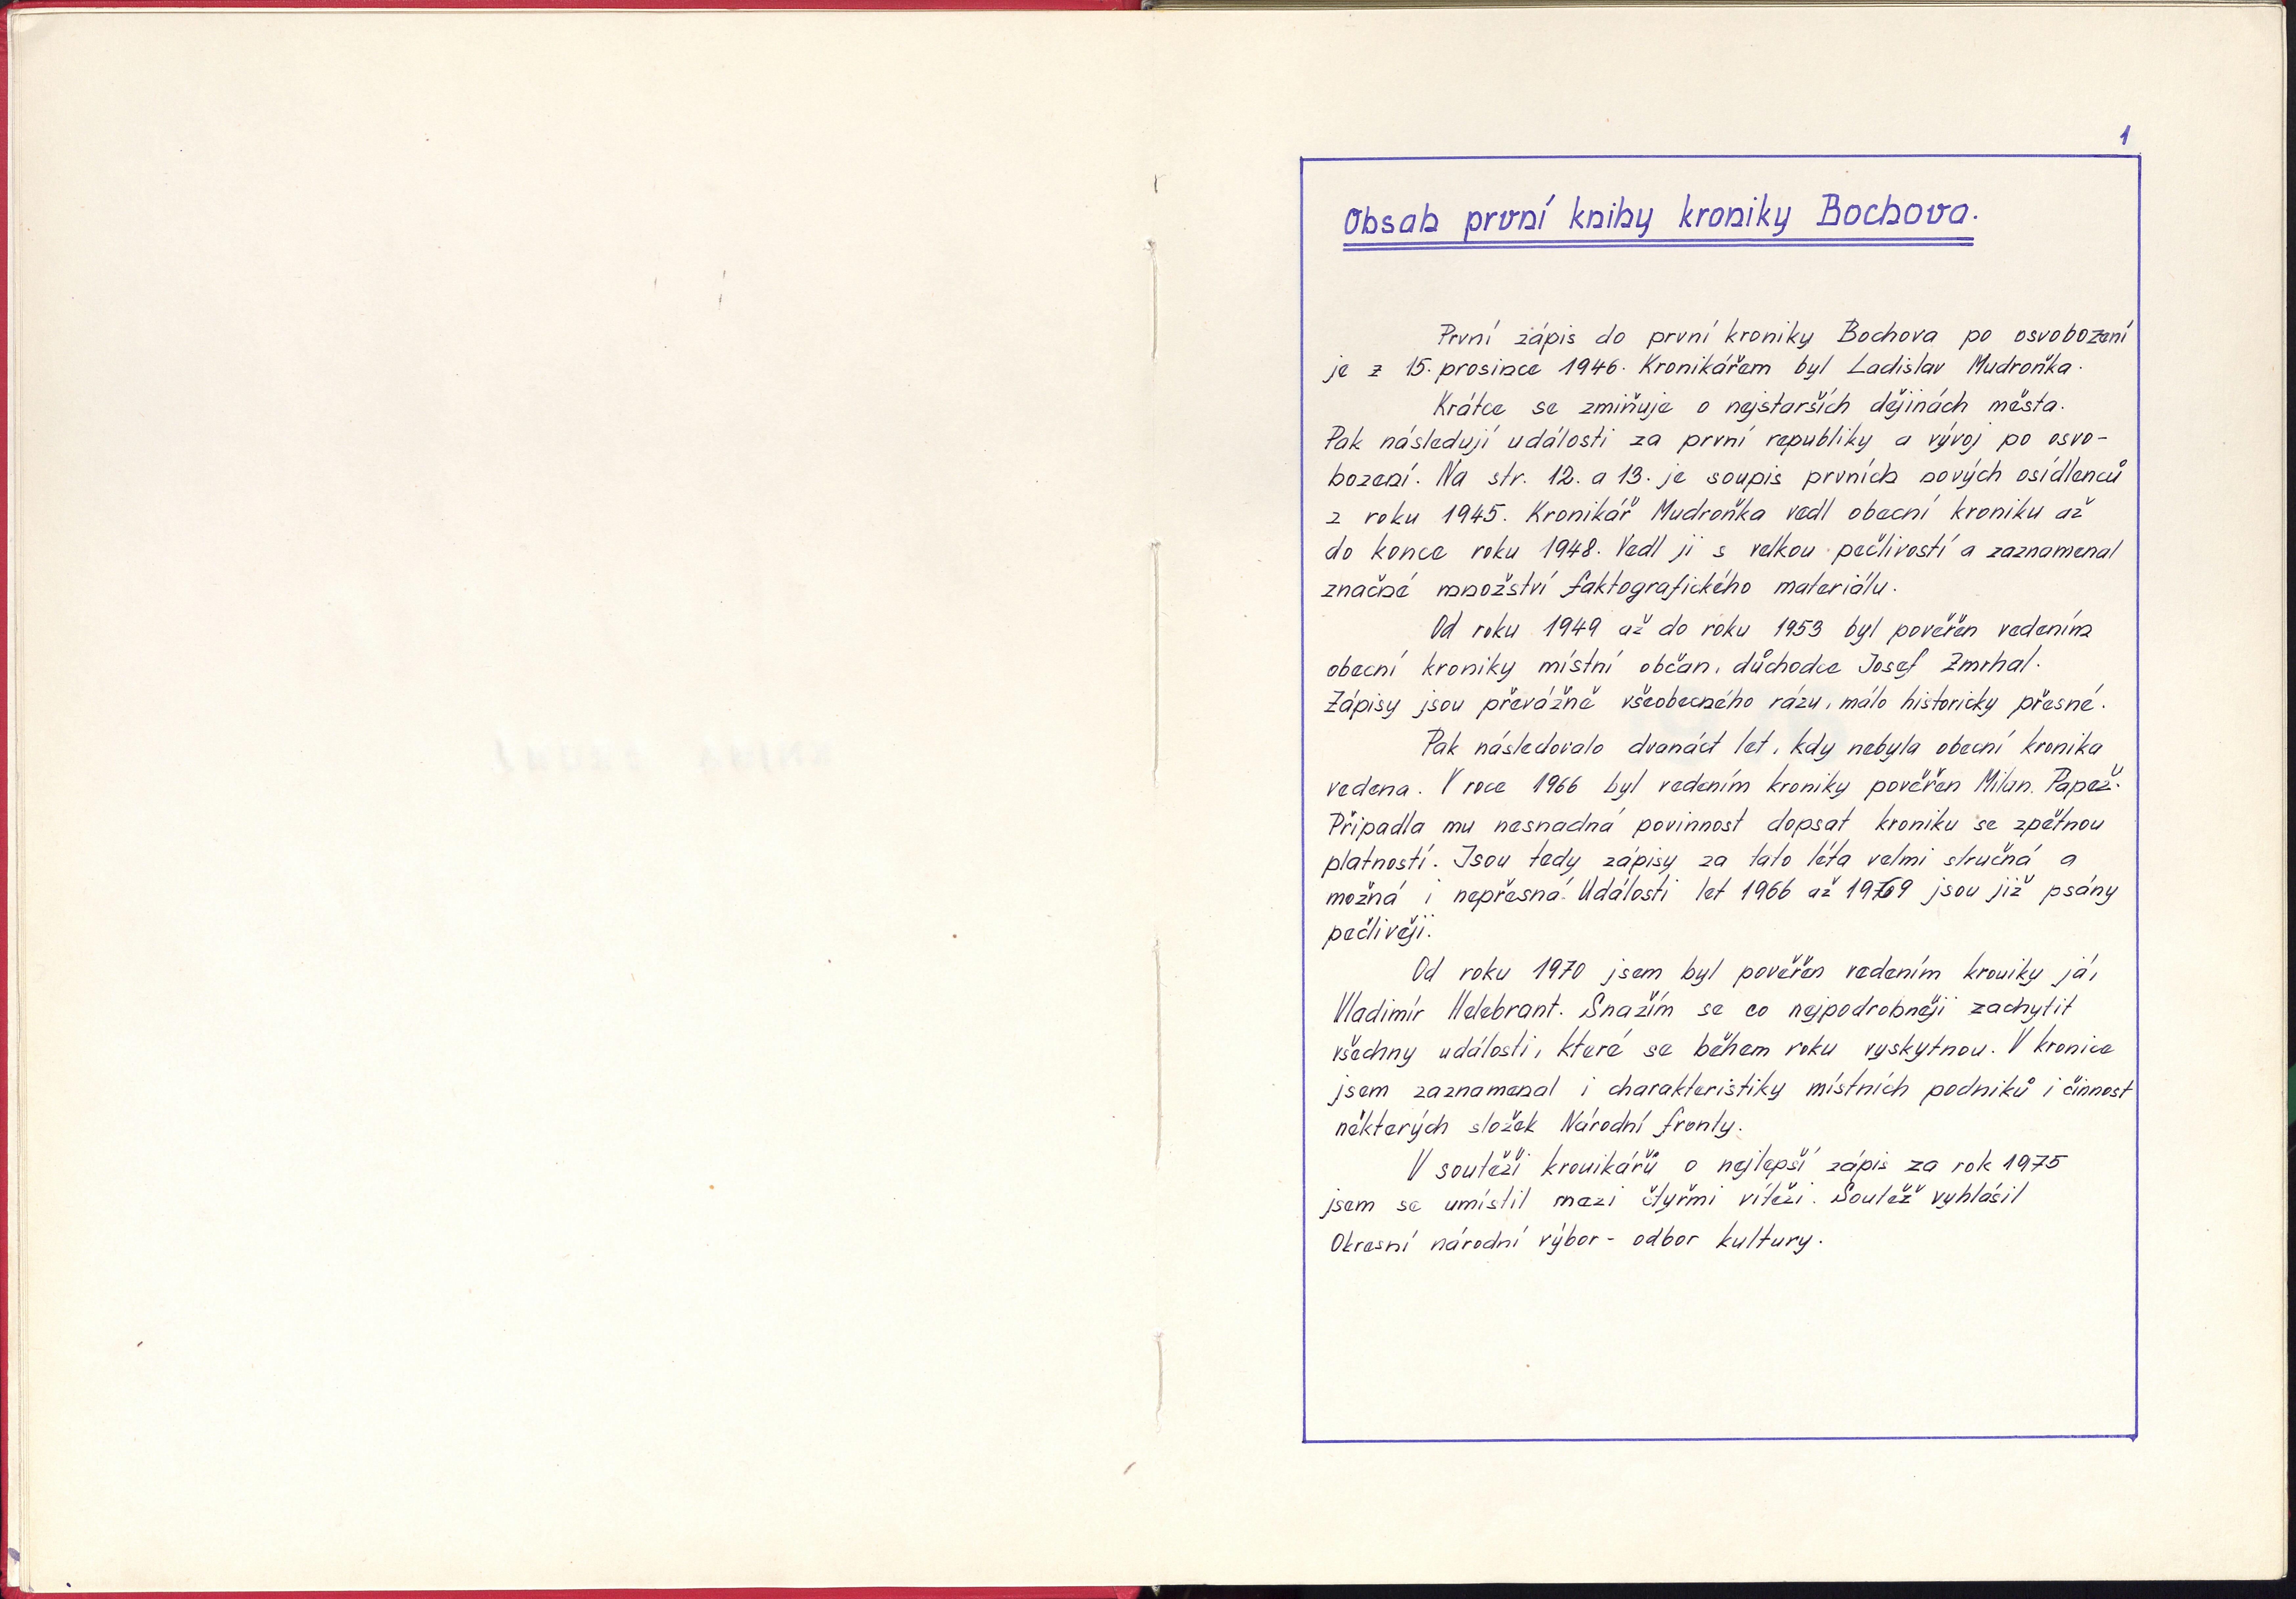 1
Obsah první knihy kroniky Bochova.
První zápis do první kroniky Bochova po osvobození
je z 15. prosince 1946. Kronikářem byl Ladislav Mudroňka.
Krátce se zmiňuje o nejstarších dějinách města.
Pak následují události za první republiky a vývoj po osvo-
bození. Na str. 12. a 13. je soupis prvních nových osídlenců
z roku 1945. Kronikář Mudroňka vedl obecní kroniku až
do konce roku 1948. Vedl ji s velkou pečlivostí a zaznamenal
značné množství faktografického materiálu.
Od roku 1949 až do roku 1953 byl pověřen vedením
obecní kroniky místní občan, důchodce Josef Zmrhal.
Zápisy jsou převážně všeobecného rázu, málo historicky přesné.
Pak následovalo dvanáct let, kdy nebyla obecní kronika
vedena. V roce 1966 byl vedením kroniky pověřen Milan Papež.
Připadla mu nesnadná povinnost dopsat kroniku se zpětnou
platností. Jsou tedy zápisy za tato léta velmi stručná a
možná i nepřesná. Události let 1966 až 1969 jsou již psány
pečlivěji.
Od roku 1970 jsem byl pověřen vedením kroniky já,
Vladimír Helebrant. Snažím se co nejpodrobněji zachytit
všechny události, které se během roku vyskytnou. V kronice
jsem zaznamenal i charakteristiky místních podniků i činnost
některých složek Národní fronty.
V soutěži kronikářů o nejlepší zápis za rok 1975
jsem se umístil mezi čtyřmi vítězi. Soutěž vyhlásil
Okresní národní výbor - odbor kultury.